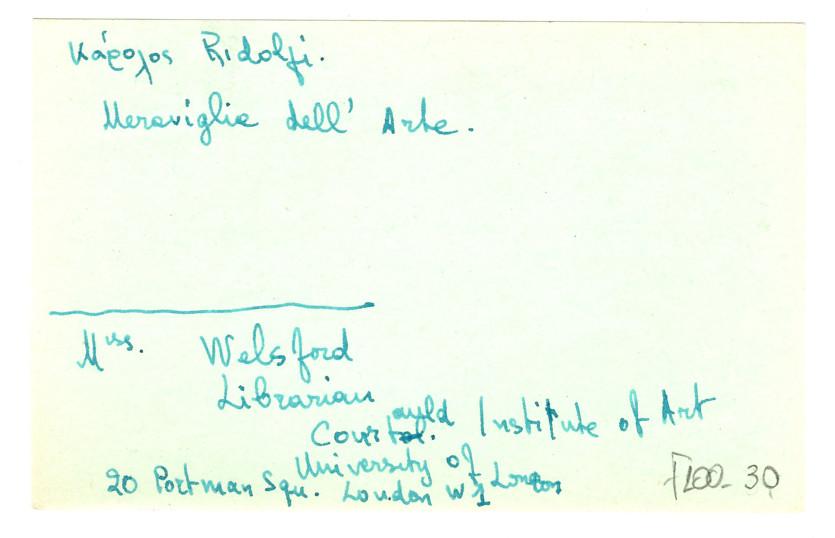 Κάρολος Ridolfi.
Meraviglie dell' Arte.
Miss. Welsford
Librarian
Courtauld Institute of Art
University of London
20 Portman Squ. London W1
FLOO_30